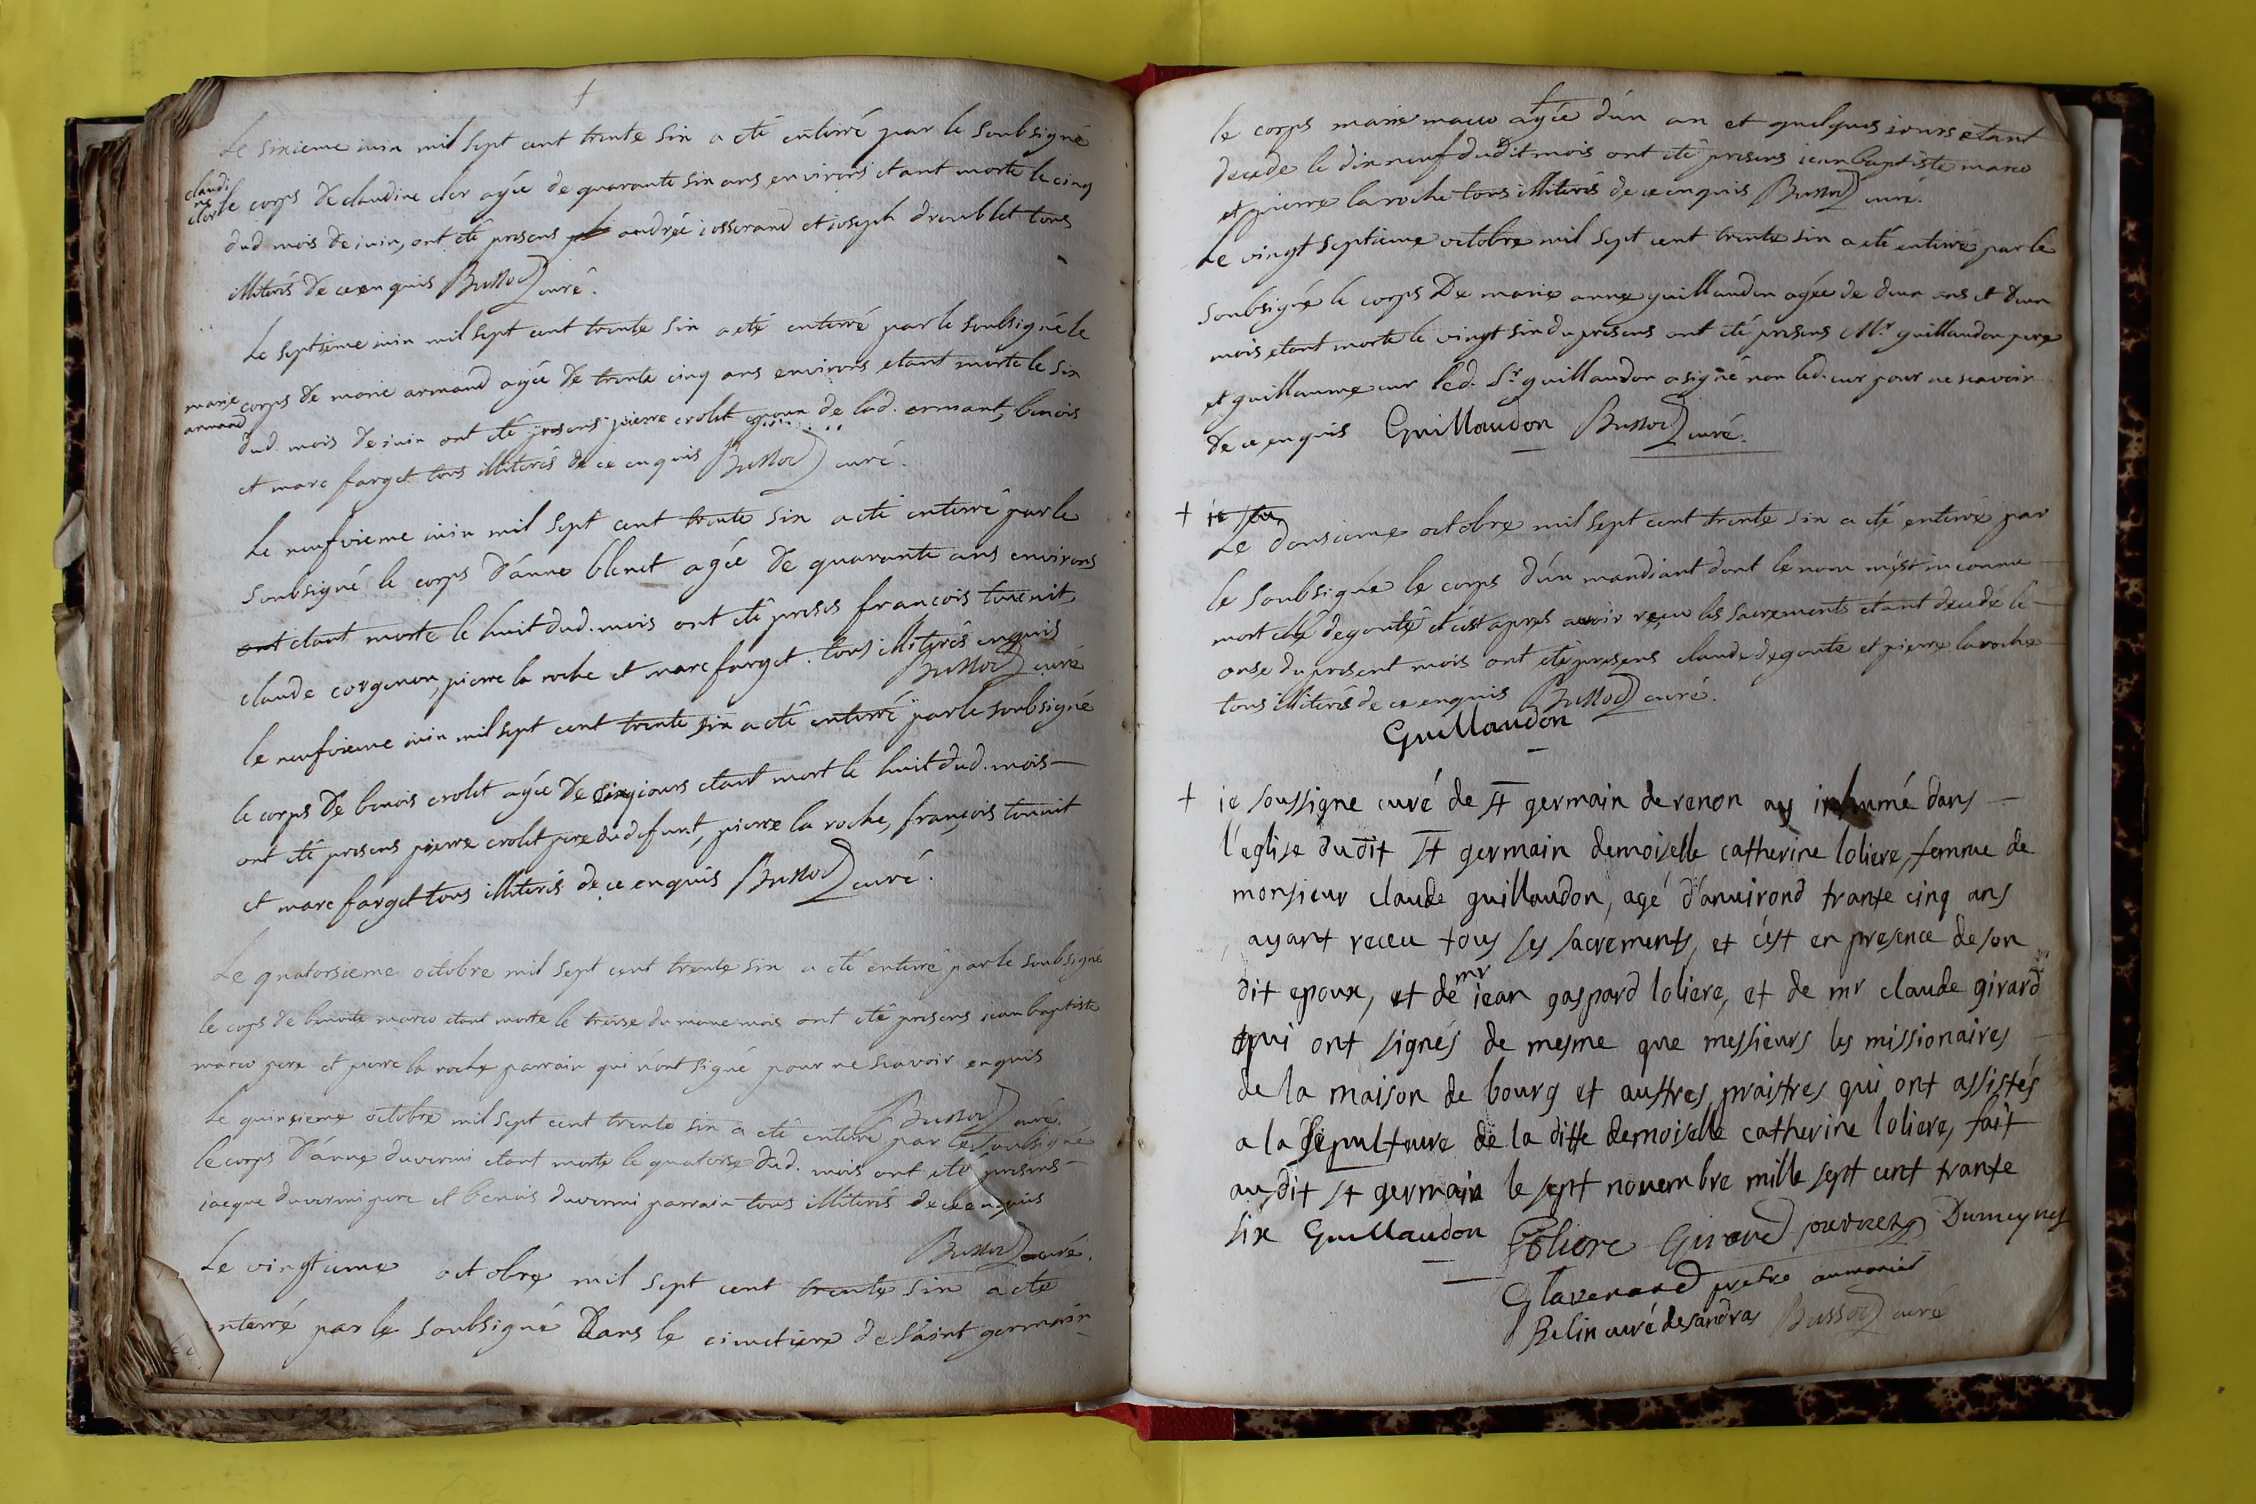 +
Le sixieme iuin mil sept cent trente six a eté enterré par le soubsigné
claudi
ne
clor
le corps de claudine clor agée de quarante six ans environs etant morte le cinq
dud. mois de iuin, ont eté presens andrée iosserand et ioseph droublet tous
illiterés de ce enquis Bussod curé.
Le septieme iuin mil sept cent trente six a eté enterré par le soubsigné le
marie
armand
corps de marie armand agée de trente cinq ans environs etant morte le six
dud. mois de iuin ont eté presens pierre crolet epoux de lad. armant, benois
et marc farget tous illiterés de ce enquis Bussod curé.
Le neufvieme iuin mil sept cent trente six a eté enterré par le
soubsigné le corps d'anne blenet agée de quarante ans environs
ont etant morte le huit dud. mois ont eté presens francois
claude corgenon, pierre la roche et marc farget. tous illiterés enquis
Bussod curé
le neufvieme iuin mil sept cent trente six a eté enterré par le soubsigné
le corps de benois crolet agée de iours etant mort le huit dud. mois
ont eté presens pierre crolet pere du defunt, pierre la roche, francois
et marc farget tous illiterés de ce enquis Bussod curé.
Le quatorsieme octobre mil sept cent trente six a eté enterré par le soubsigné
le cops de benoite marco etant morte le treise du meme mois ont eté presens iean baptiste
marco pere et pierre la roche parrain qui n'ont signé pour ne scavoir enquis
Bussod curé.
Le quinsieme octobre mil sept cent trente six a eté enterré par le soubsigné
le corps d'anne duvermi etant morte le quatorse dud. mois ont eté presens
iacque duvermi pere et benois duvermi parrain tous illiterés de ce enquis
Bussod curé.
Le vingtieme octobre mil sept cent trente six a eté
enterré par le soubsigné dans le cimetiere de saint germain
+
le corps marie marco agée d'un an et quelques iours etant
decede le dix neuf dudit mois ont eté presens iean baptiste marco
et pierre laroche tous illiterés de ce enquis Bussod curé.
Le vingt septieme octobre mil sept cent trente six a eté enterré par le
soubsigné le corps De marie anne guillaudon agée de deux ans et deux
mois etant morte le vingt six du presens ont eté presens Mr. guillaudon pere
et guillaume cur led. Sr. guillaudon a signé non led. cur pour ne scavoir
de ce enquis Guillaudon Bussod curé.
+ ie
Le dousieme octobre mil sept cent trente six a eté enterré par
le soubsigné le corps d'un mandiant dont le nom m'est inconnu
mort degouté et c'est apres avoir reçu les sacrements etant decedé le
onse du present mois ont eté presens claude degoute et pierre laroche
tous illiterés de ce enquis Bussod curé.
Guillaudon
+ ie soussigne curé de st germain de renon ay inhumé dans
l'eglise dudit st germain demoiselle catherine loliere, femme de
monsieur claude guillaudon, agé d'anuirond trante cinq ans
ayant receu tous ses sacrements, et c'est en presence de son
dit epoux, et de mr iean gaspard loliere, et de mr claude girard
qui ont signés de mesme que messieurs les missionaires
de la maison de bourg et austres praistres qui ont assistés
a la sepulture de la ditte demoiselle catherine loliere, fait
audit st germain le sept novembre mille sept cent trante
six Guillaudon Loliere Girard Dumeynes
prestre aumonier
Belin curé de sandras Bussod curé